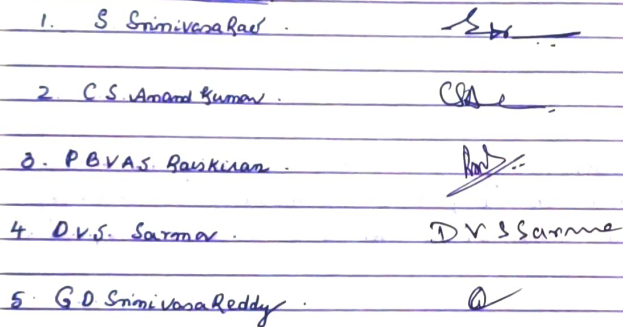 1. S Srinivasa Rao.
2 C S. Anand Kumar. CSA
3. P B V A S. Ravikiran.
4 D.V.S. Sarma. D V S Sarma
5. G D Srinivasa Reddy.